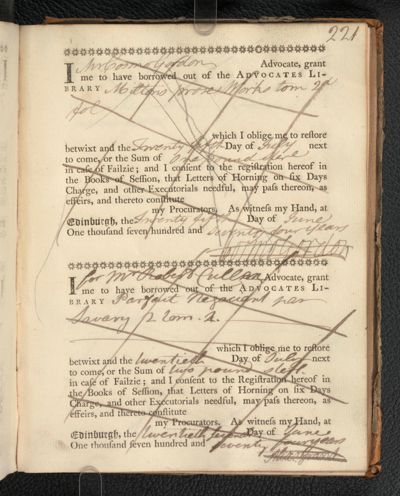 221
I Mr Cosmo Gordon Advocate, grant
me to have borrowed out of the ADVOCATES LI-
BRARY Miltons prose Works tom 2d
fol
which I oblige me to restore
betwixt and the Twenty fifth Day of July next
to come, or the Sum of One pound sterl
in case of Failzie; and I consent to the registration hereof in
the Books of Session, that Letters of Horning on six Days
Charge, and other Executorials needful, may pass thereon, as
effeirs, and thereto constitute
my Procurators. As witness my Hand, at
Edinburgh, the Twenty fifth Day of June
One thousand seven hundred and Seventy four years
I for Mr Robert Cullen Advocate, grant
me to have borrowed out of the ADVOCATES LI-
BRARY Parfait Negociant par
Savary 2 tom.
which I oblige me to restore
betwixt and the twentieth Day of July next
to come, or the Sum of two pound sterl.
in case of Failzie; and I consent to the Registration hereof in
the Books of Session, that Letters of Horning on six Days
Charge, and other Executorials needful, may pass thereon, as
effeirs, and thereto constitute
my Procurators. As witness my Hand, at
Edinburgh, the twentieth Day of June
One thousand seven hundred and seventy four years